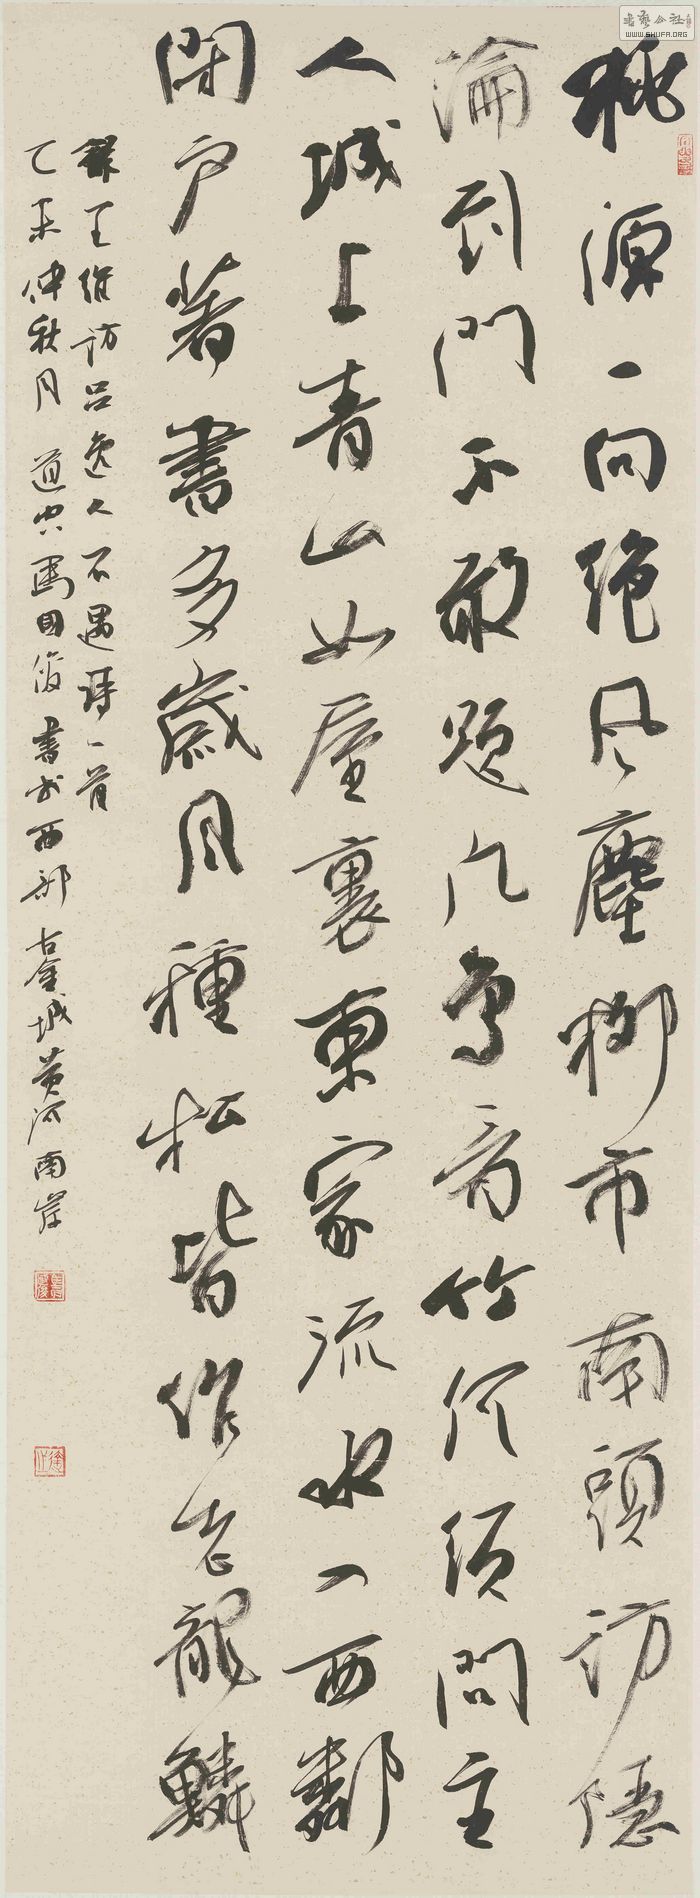 書藝公社
WWW.SHUFA.ORG
桃源一向絶風塵柳市南頭訪隱
淪到門不敢題凡鳥看竹何須問主
人城上青山如屋裏東家流水入西鄰
閉户著書多歲月種松皆作老龍鱗
録王維訪吕逸人不遇詩一首
乙未仲秋月道 馬國俊書於西部古金城黄河南岸